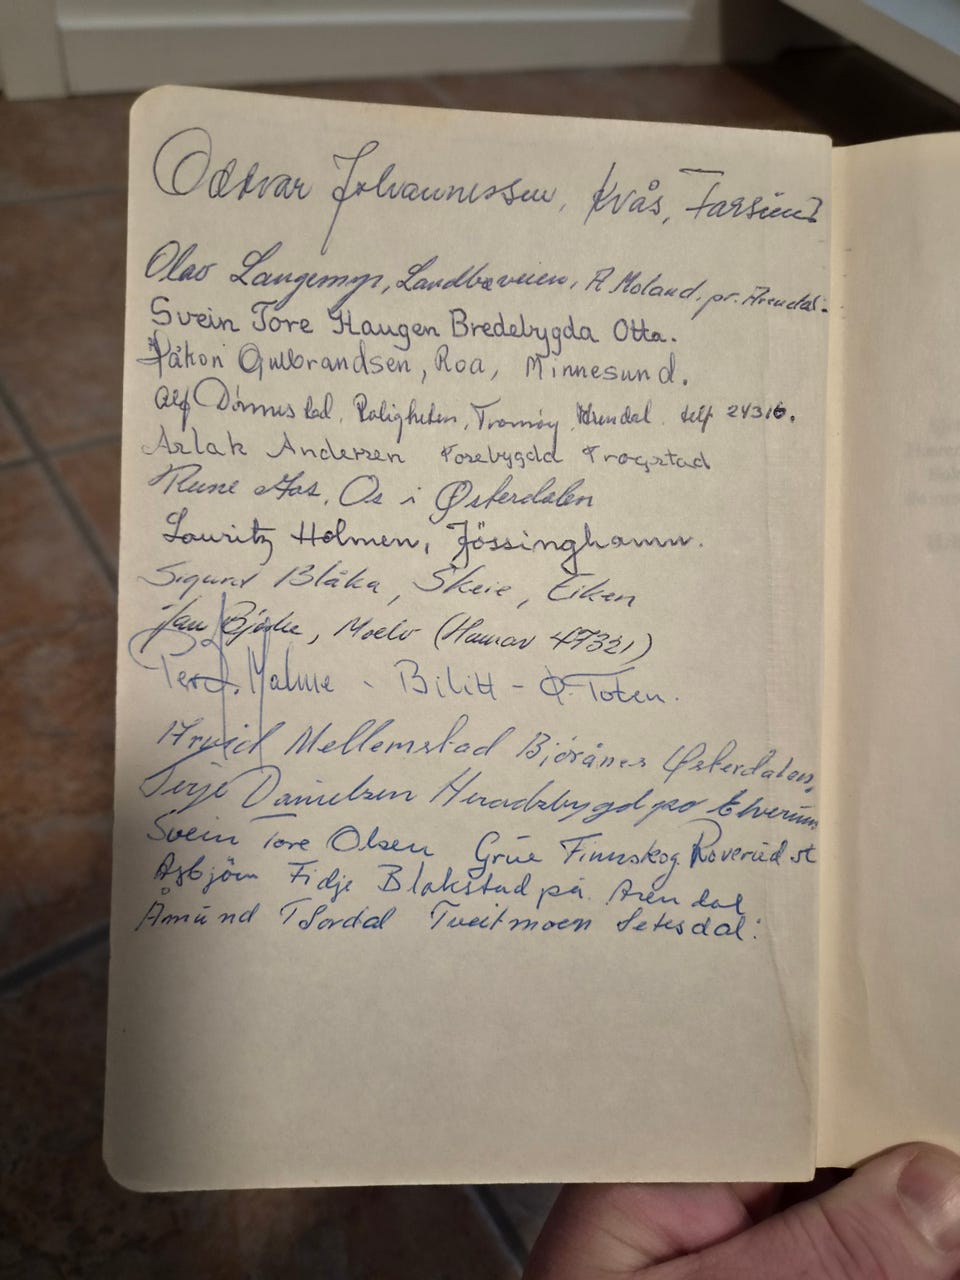 Oddvar Johannessen, Kvås, Farsund
Olav Langemyr, Landbøveien, A. Moland, pr. Arendal.
Svein Tore Haugen Bredebygda Otta.
Håkon Gulbrandsen, Roa, Minnesund.
Alf Dømmestad, Roligheten, Tromøy, Arendal. telf 24316.
Aslak Andersen Forebygda Trøgstad
Rune Aas, Os i Østerdalen
Lauritz Holmen, Jössinghamn.
Sigurd Blåka, Skeie, Eiken
Jan Bjerke, Moelv (Hamar 47321)
Per Malme - Bilitt - Ø-Toten.
Arvid Mellemstad Bjørånes Østerdalen,
Terje Danielsen Heradsbygd pr Elverum
Svein Tore Olsen Grue Finnskog Roverud st
Asbjörn Fidje Blakstad på Arendal
Åmund Tveitmoen Setesdal: